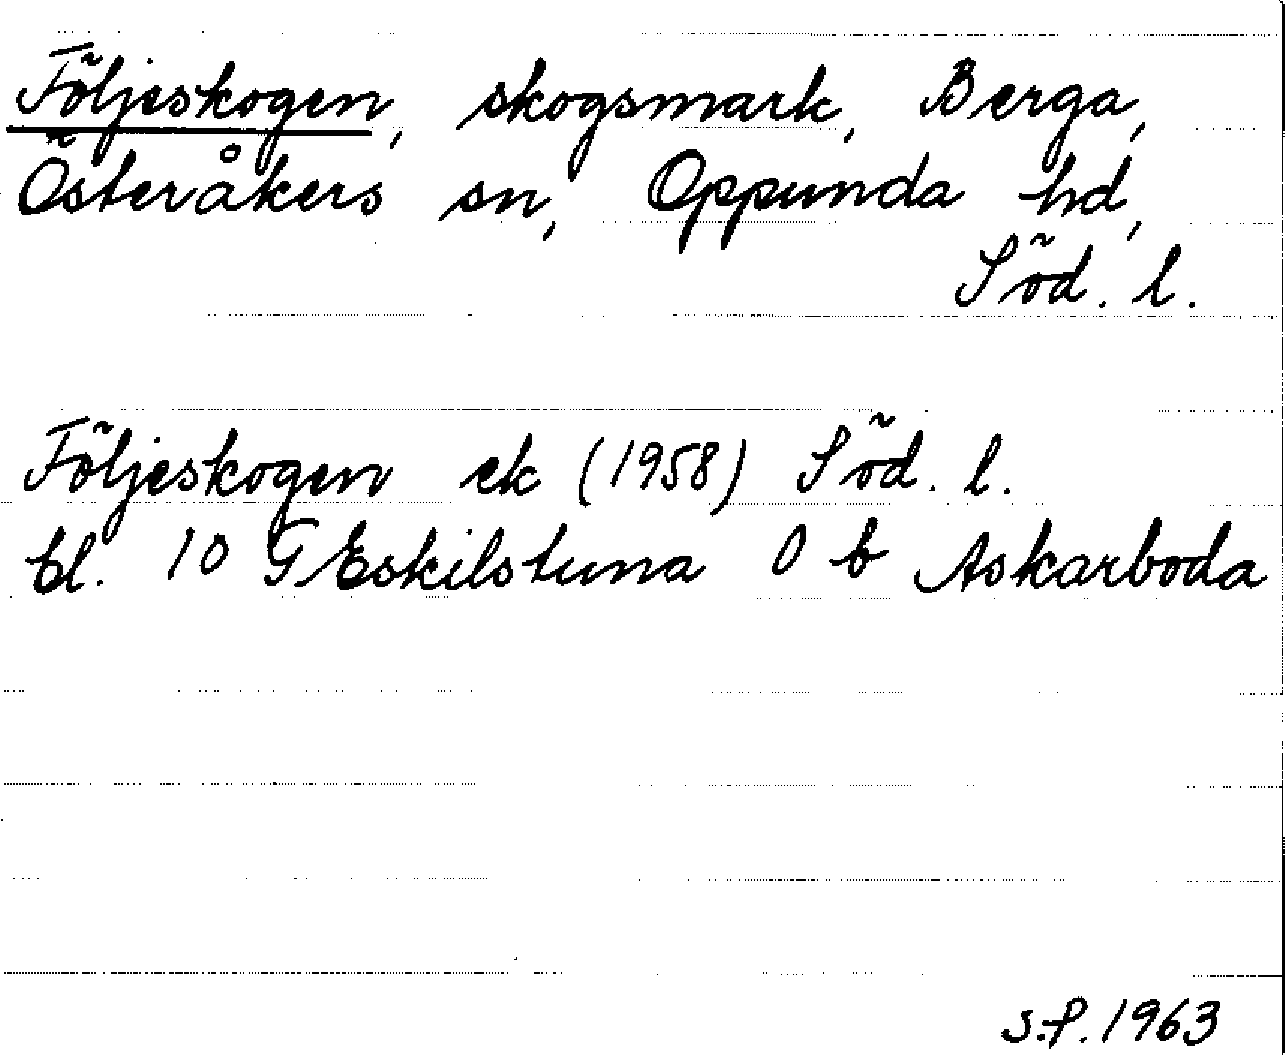 Följeskogen, skogsmark, Berga,
Österåkers sn, Oppunda hd,
Söd. l.
Följeskogen ek (1958) Söd. l.
bl. 10 G Eskilstuna 0 b Askarboda
S.P. 1963